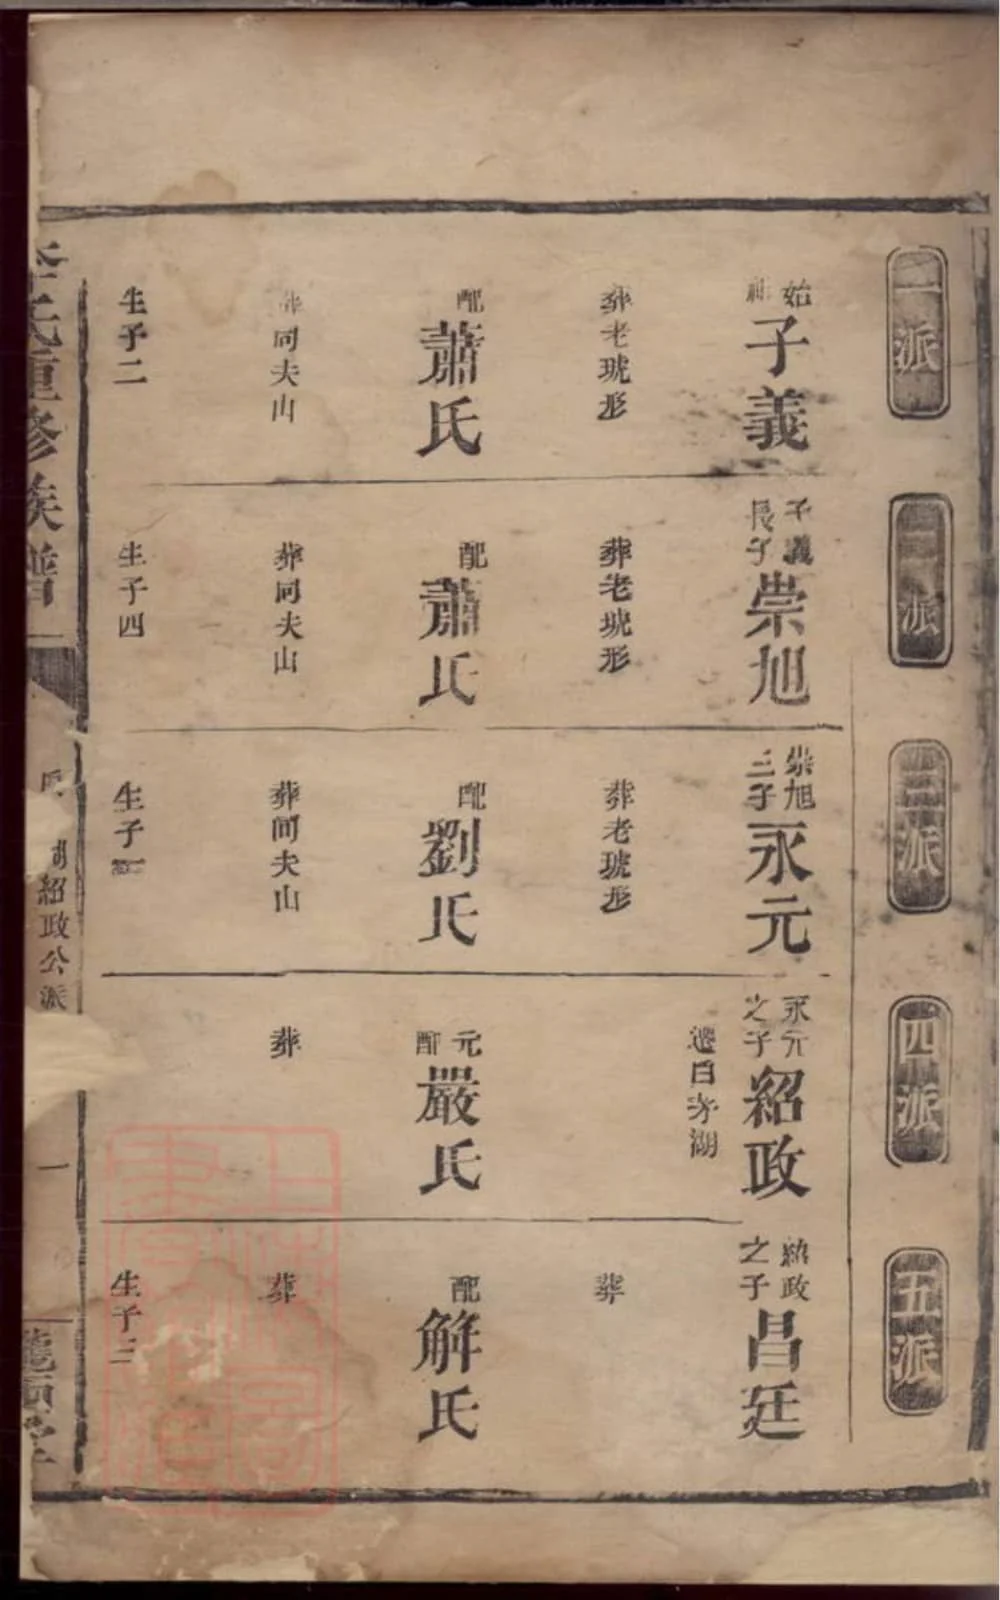 一派
二派
三派
四派
五派
始祖
子義
葬老琥形
配
蕭氏
葬同夫山
生子二
子義
長子
崇旭
葬老琥形
配
蕭氏
葬同夫山
生子四
崇旭
三子
永元
葬老琥形
配
劉氏
葬同夫山
生子
永元
之子
紹政
遷白茅湖
元
配
嚴氏
葬
紹政
之子
昌廷
葬
配
解氏
葬
生子三
李氏重修族譜
湖紹政公派
一
隴西堂